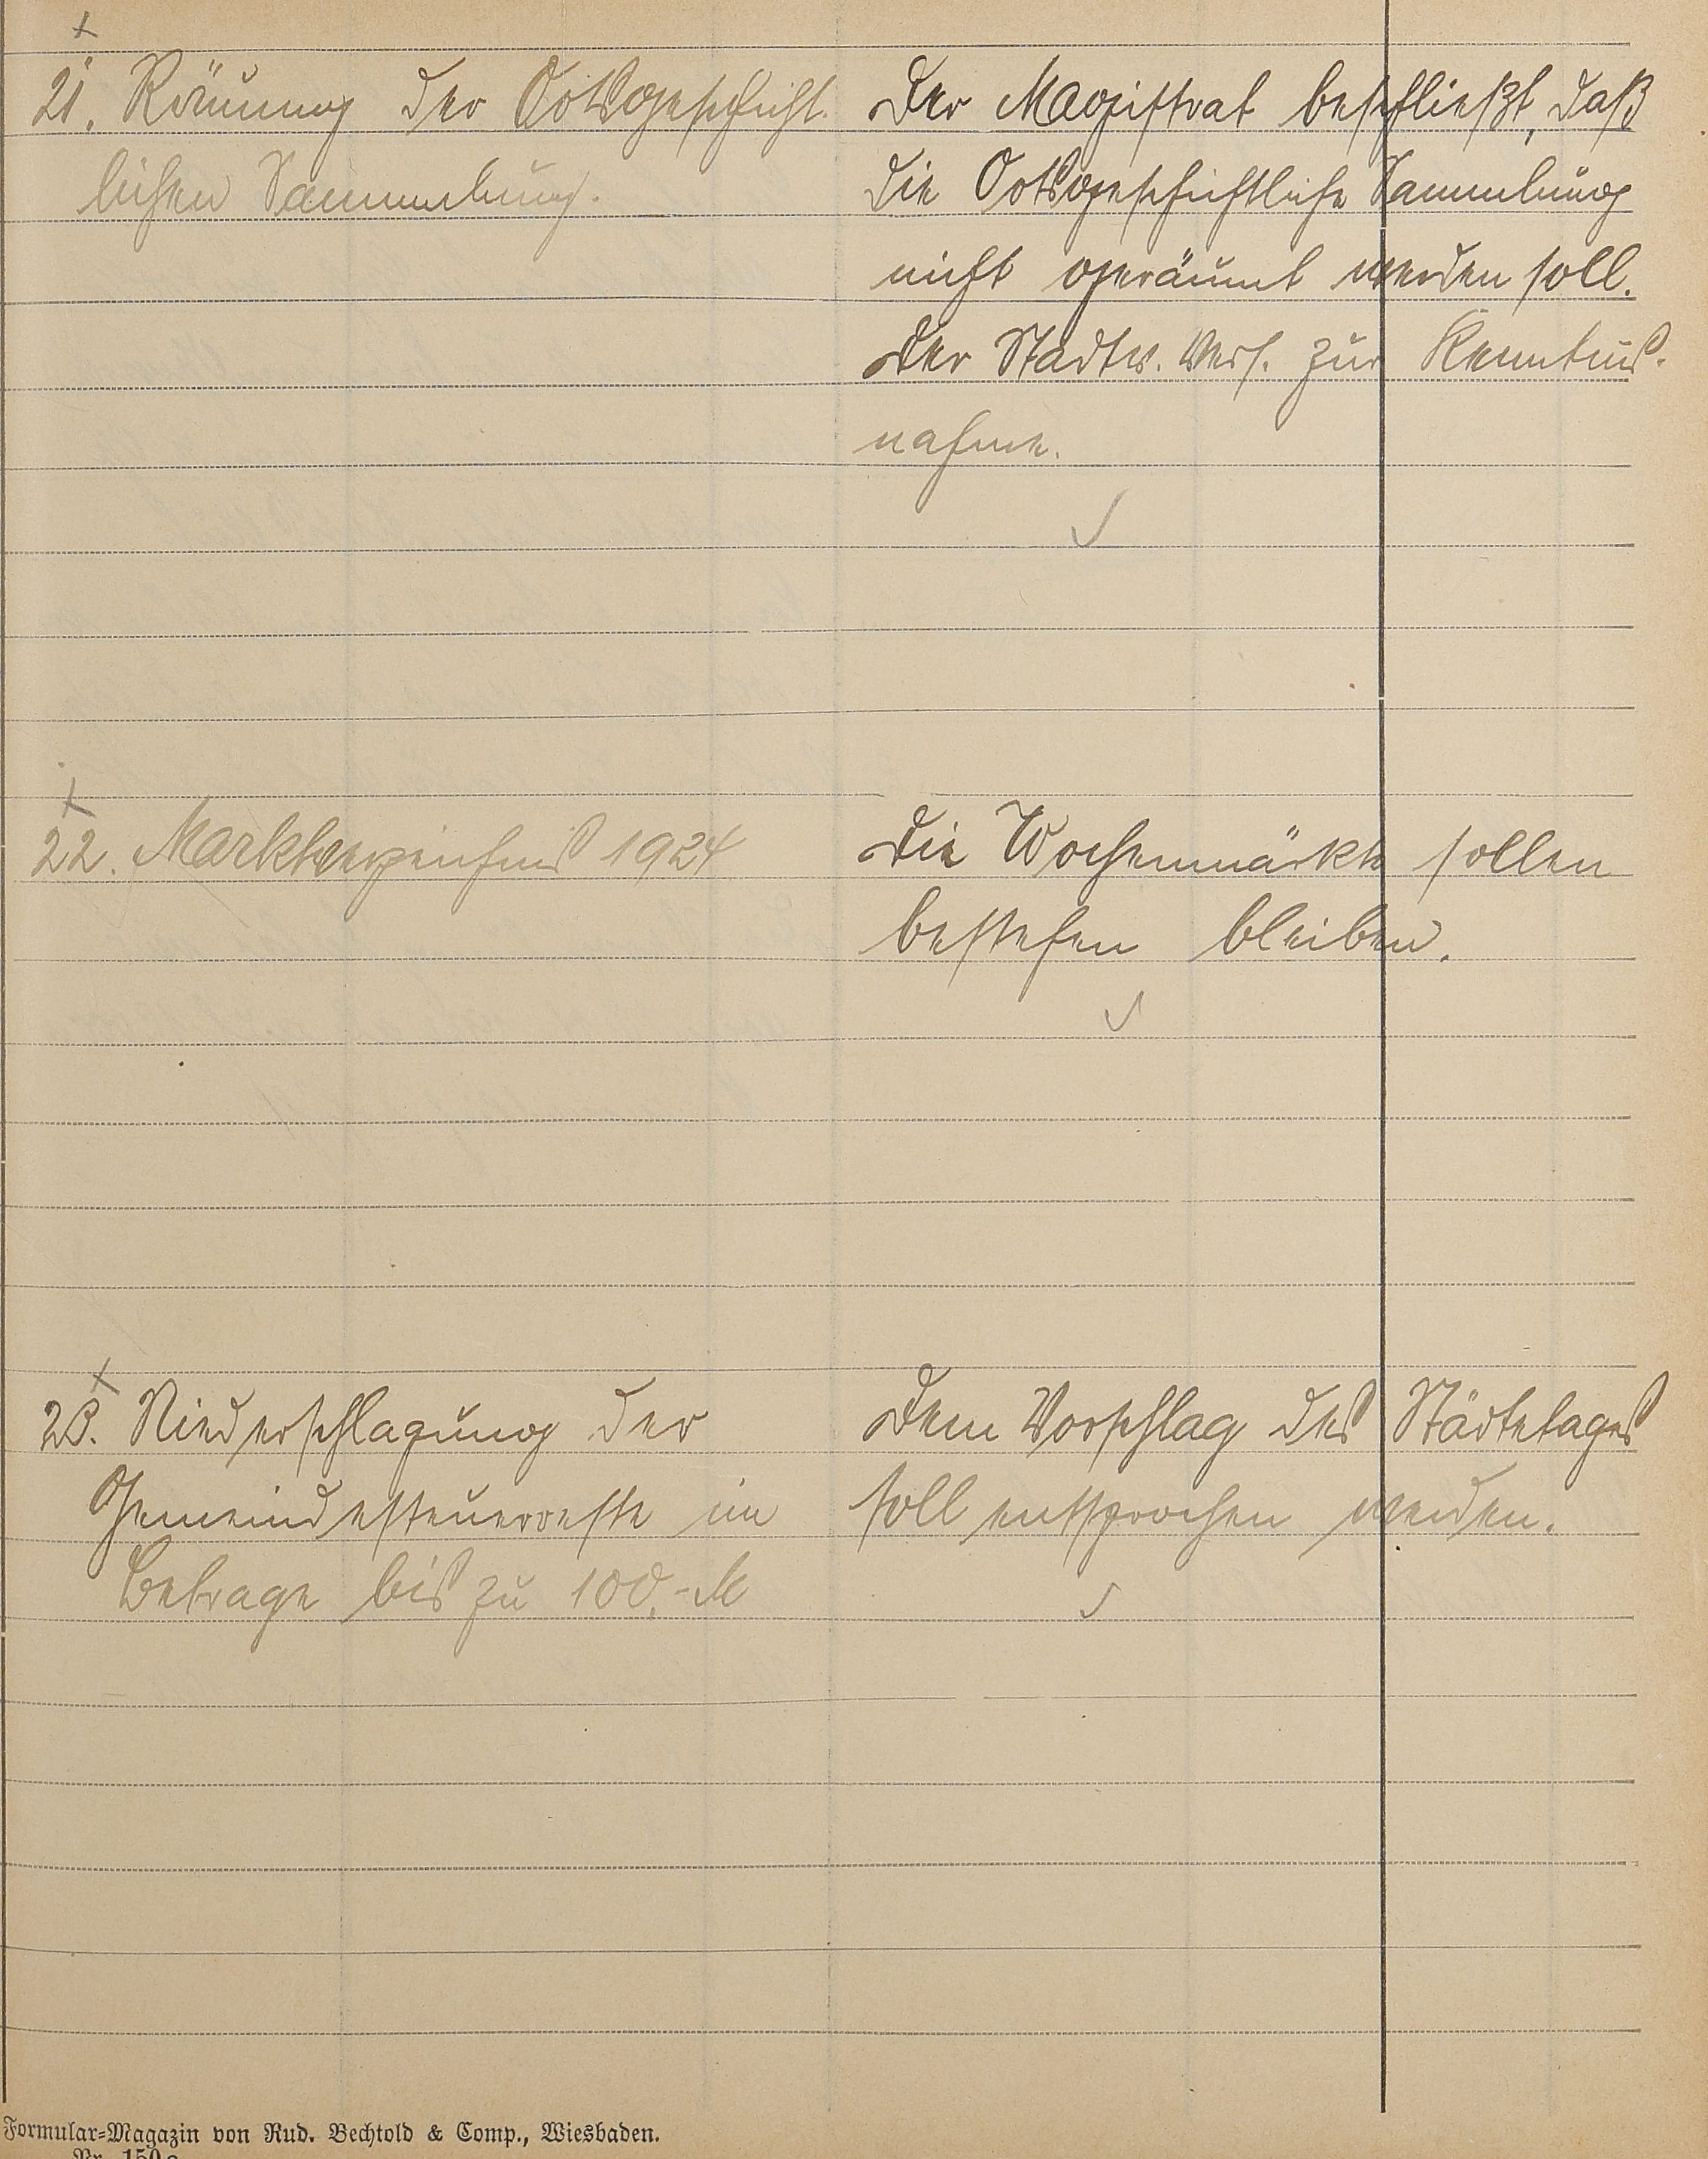 21. Räumung der Ortsgeschicht-
lichen Sammlung.
Der Magistrat beschließt, daß
die Ortsgeschichtliche Sammlung
nicht geräumt werden soll.
Der Stadtv. Vers. zur Kenntnis-
nahme.
22. Marktverzeichnis 1924
Die Wochenmärkte sollen
bestehen bleiben.
23. Niederschlagung der
Gemeindesteuerreste im
Betrage bis zu 100,- M
Dem Vorschlag des Städtetages
soll entsprochen werden.
Formular-Magazin von Rud. Bechtold & Comp., Wiesbaden.